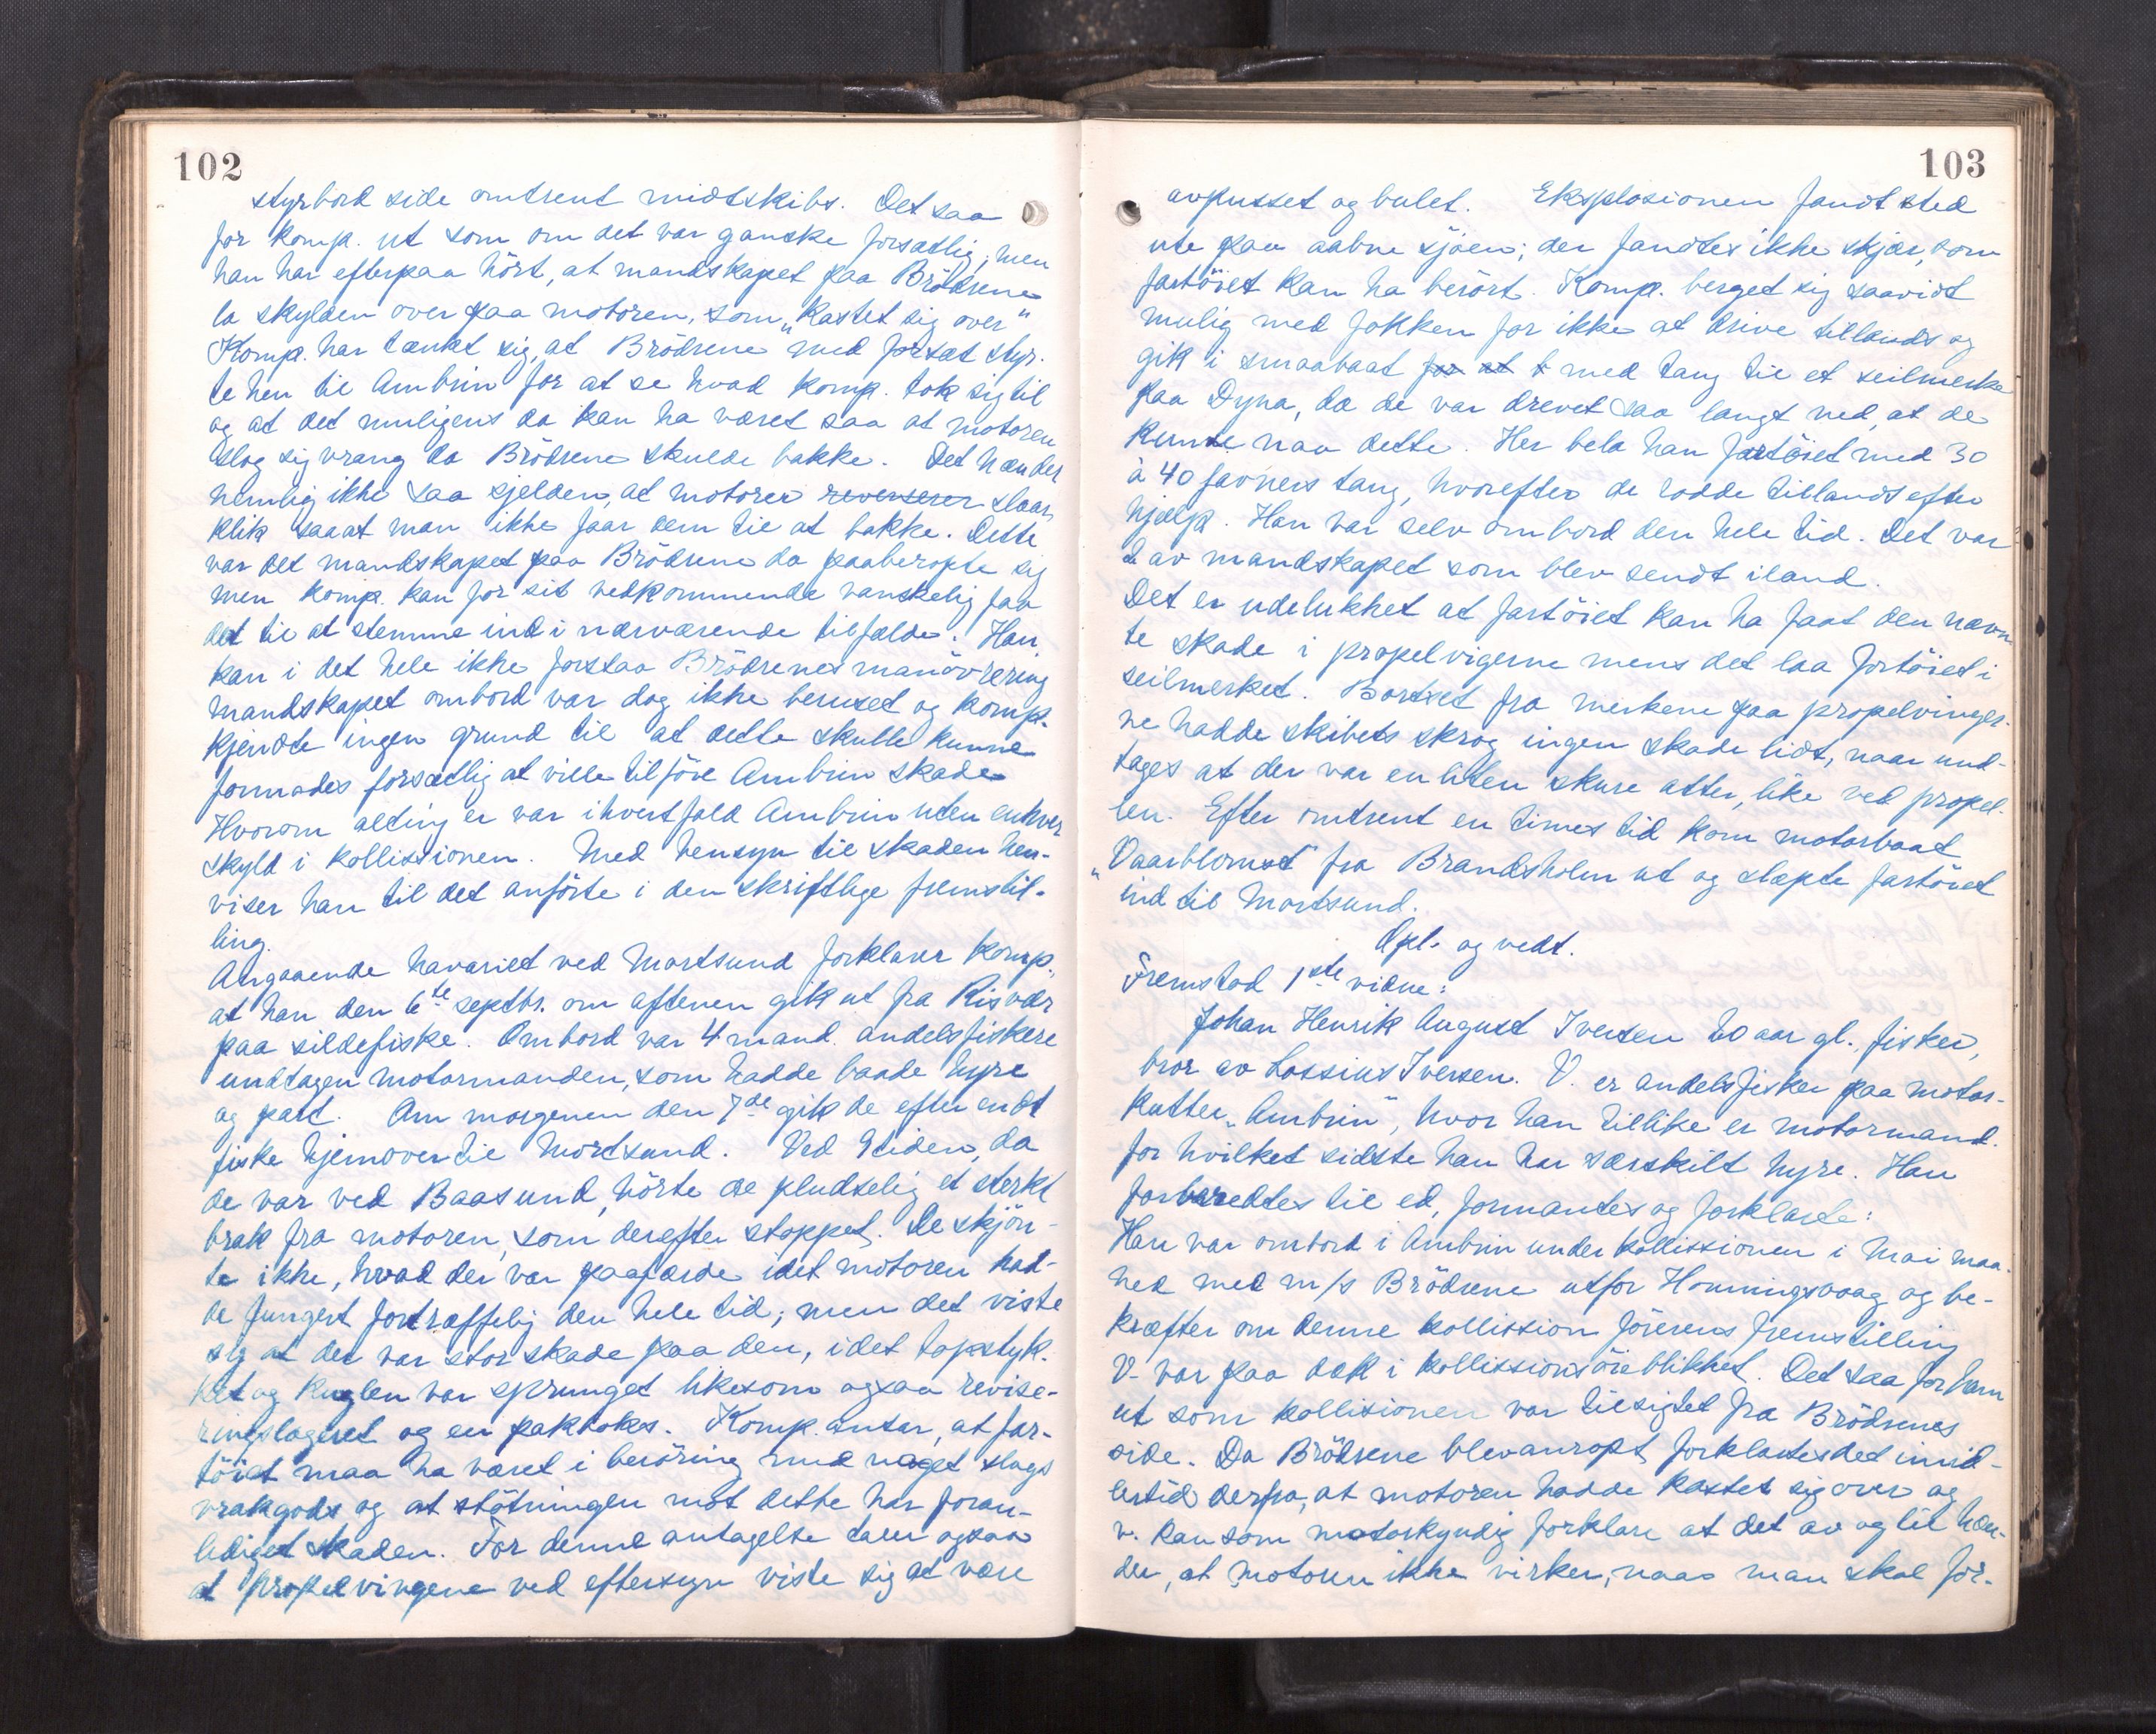 102
styrbord side omtrent midtskibs. Det saa
for komp. ut som om det var ganske forsætlig, men
han har efterpaa hört, at mandskapet paa Brödrene
la skylden over paa motoren, som „kastet sig over"
Komp. har tænkt sig, at Brödrene med forsæt styr-
te hen til Ambrin for at se hvad komp. tok sig til
og at det muligens da kan ha været saa at motoren
slog sig vrang da Brödrene skulde bakke. Det hænder
nemlig ikke saa sjelden, at motorer reverserer slaar
klik saaat man ikke faar dem til at bakke. Dette
var det mandskapet paa Brödrene da paaberopte sig
men komp. kan for sit vedkommende vanskelig faa
det til at stemme ind i nærværende tilfælde. Han
kan i det hele ikke forstaa Brödrenes manövrering
mandskapet ombord var dog ikke beruset og komp.
kjendte ingen grund til at dette skulle kunne
formodes forsætlig at ville tilföre Ambrin skade
Hvorom alting er var ihvertfald Ambrin uten enhver
skyld i kollissionen. Med hensyn til skaden hen-
viser han til det anförte i den skriftlige fremstil-
ling.
Angaaende havariet ved Mortsund forklarer komp.,
at han den 6te septbr. om aftenen gik ut fra Risvær
paa sildefiske. Ombord var 4 mand. andelsfiskere
undtagen motormanden, som hadde baade hyre
og part. Om morgenen den 7de gik de efter endt
fiske hjemover til Mortsund. Ved 9 tiden, da
de var ved Baasund, hörte de pludselig et sterkt
brak fra motoren, som derefter stoppet. De skjön-
te ikke, hvad der var paafærde idet motoren had-
de fungert fortræffelig den hele tid; men det viste
sig at der var stor skade paa den, idet topstyk-
ket og kuglen var sprunget likesom ogsaa revise-
ringslageret og en pakbokes. Komp. antar, at far-
töiet maa ha været i beröring med noget slags
vrakgods og at stötningen mot dette har foran-
lediget skaden. For denne antagelse taler ogsaa
at propelvingene ved eftersyn viste sig at være
103
avpusset og bulet. Eksplosionen fandt sted
ute paa aabne sjöen; der fandtes ikke skjær, som
fartöiet kan ha berört. Komp. berget sig saavidt
mulig med fokken for ikke at drive tillands og
gik i smaabaat for at t med taug til et seilmerke
paa Dyna, da de var drevet saa langt ned, at de
kunde naa dette. Her bela han fartöiet med 30
à 40 favners taug, hvorefter de rodde tillands efter
hjælp. Han var selv ombord den hele tid. Det var
2 av mandskapet som blev sendt iland.
Det er udelukket at fartöiet kan ha faat den nævn-
te skade i propelvigerne mens det laa fortöiet i
seilmerket. Bortset fra merkene paa propelvinger-
ne hadde skibets skrog ingen skade lidt, naar und-
tages at der var en liten skure atter, like ved propel-
len. Efter omtrent en times tid kom motorbaat
„Vaarblomst" fra Brandsholm ut og slæpte fartöiet
ind til Mortsund.
Opl. og vedt.
Fremstod 1ste vidne:
Johan Henrik August Iversen 20 aar gl., fisker,
bror av Lossius Iversen. V. er andelsfisker paa motor-
kutter „Ambrin", hvor han tillike er motormand.
for hvilket sidste han har særskilt hyre. Han
forberedtes til ed, formantes og forklarte:
Han var ombord i Ambrin under kollissionen i mai maa-
ned med m/s Brödrene utfor Honningsvaag og be-
kræfter om denne kollission förerens fremstilling
V. var paa dæk i kollissionsöieblikket. Det saa for ham
ut som kollisionen var tilsigtet fra Brödrenes
side. Da Brödrene blev anropt forklartes det imid-
lertid derfra, at motoren hadde kastet sig over og
v. kan som motorkyndig forklare at det av og til hæn-
der, at motoren ikke virker, naar man skal for-